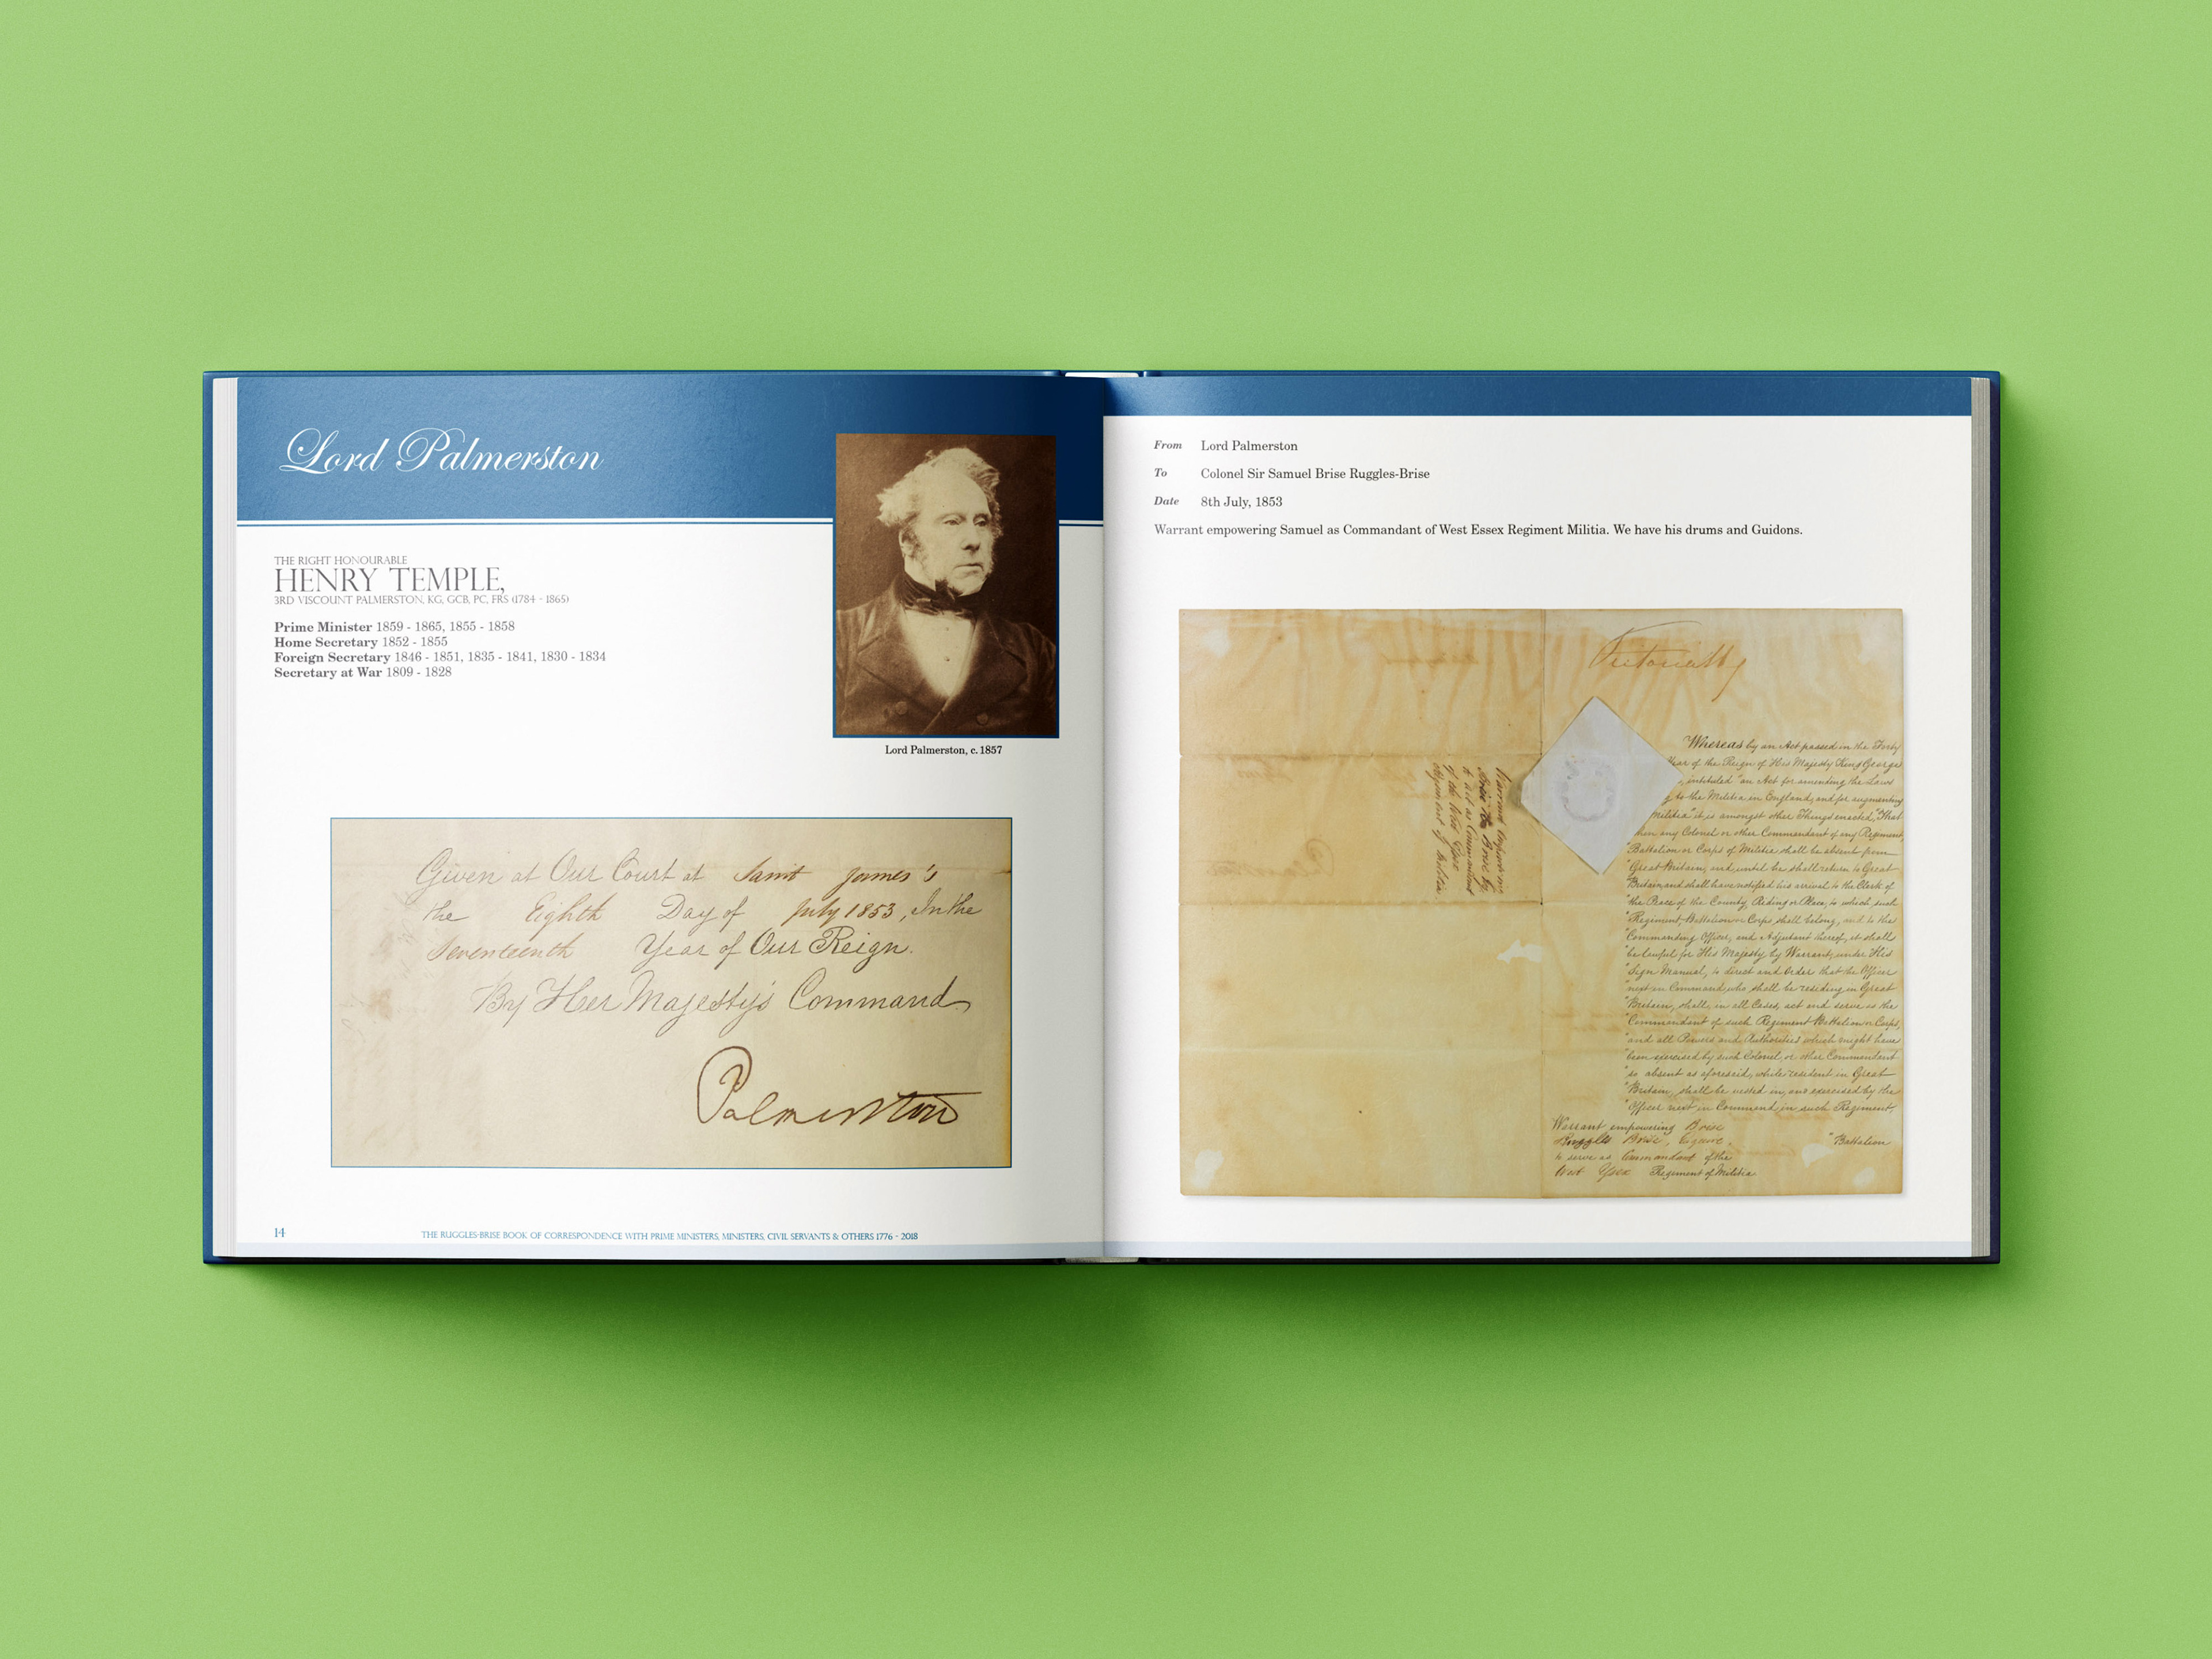 Lord Palmerston
THE RIGHT HONOURABLE
HENRY TEMPLE,
3RD VISCOUNT PALMERSTON, KG, GCB, PC, FRS (1784 - 1865)
Prime Minister 1859 - 1865, 1855 - 1858
Home Secretary 1852 - 1855
Foreign Secretary 1846 - 1851, 1835 - 1841, 1830 - 1834
Secretary at War 1809 - 1828
Lord Palmerston, c.1857
Given at Our Court at Saint James's
the Eighth Day of July 1853, In the
Seventeenth Year of Our Reign.
By Her Majesty's Command.
Palmerston
14
THE RUGGLES-BRISE BOOK OF CORRESPONDENCE WITH PRIME MINISTERS, MINISTERS, CIVIL SERVANTS & OTHERS 1776 - 2018
From Lord Palmerston
To Colonel Sir Samuel Brise Ruggles-Brise
Date 8th July, 1853
Warrant empowering Samuel as Commandant of West Essex Regiment Militia. We have his drums and Guidons.
Whereas by an Act passed in the Forty
Year of the Reign of His Majesty King George
intituled "an Act for amending the Laws
to the Militia in England, and for augmenting
Militia" it is amongst other Things enacted, "That
when any Colonel or other Commandant of any Regiment,
"Battalion or Corps of Militia shall be absent from
"Great Britain, and until he shall return to Great
"Britain, and shall have notified his arrival to the Clerk of
"the Peace of the County, Riding or Place, to which such
"Regiment, Battalion or Corps shall belong, and to the
"Commanding Officer, and Adjutant thereof, it shall
"be lawful for His Majesty by Warrant, under His
"Sign Manual, to direct and Order that the Officer
"next in Command, who shall be residing in Great
"Britain, shall, in all Cases, act and serve as the
"Commandant of such Regiment Battalion or Corps,
"and all Powers and Authorities which might have
"been exercised by such Colonel, or other Commandant
"so absent as aforesaid, while resident in Great
"Britain, shall be vested in, and exercised by the
"Officer next in Command in such Regiment,
"Battalion
Warrant empowering Brise
Ruggles Brise, Esquire,
to serve as Commandant of the
West Essex Regiment of Militia